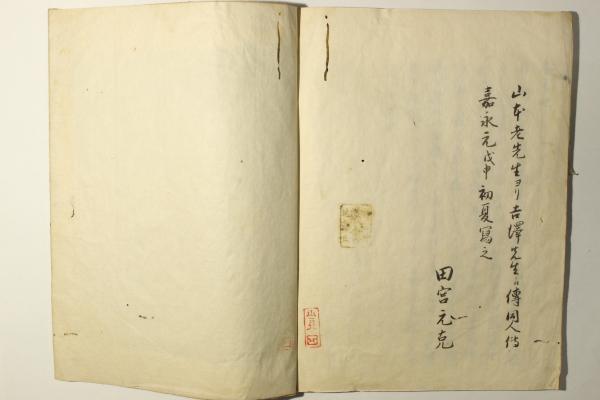 山本老先生ヨリ吉澤先生ニ傳同人傳
嘉永元戊申初夏寫之
田宮元克